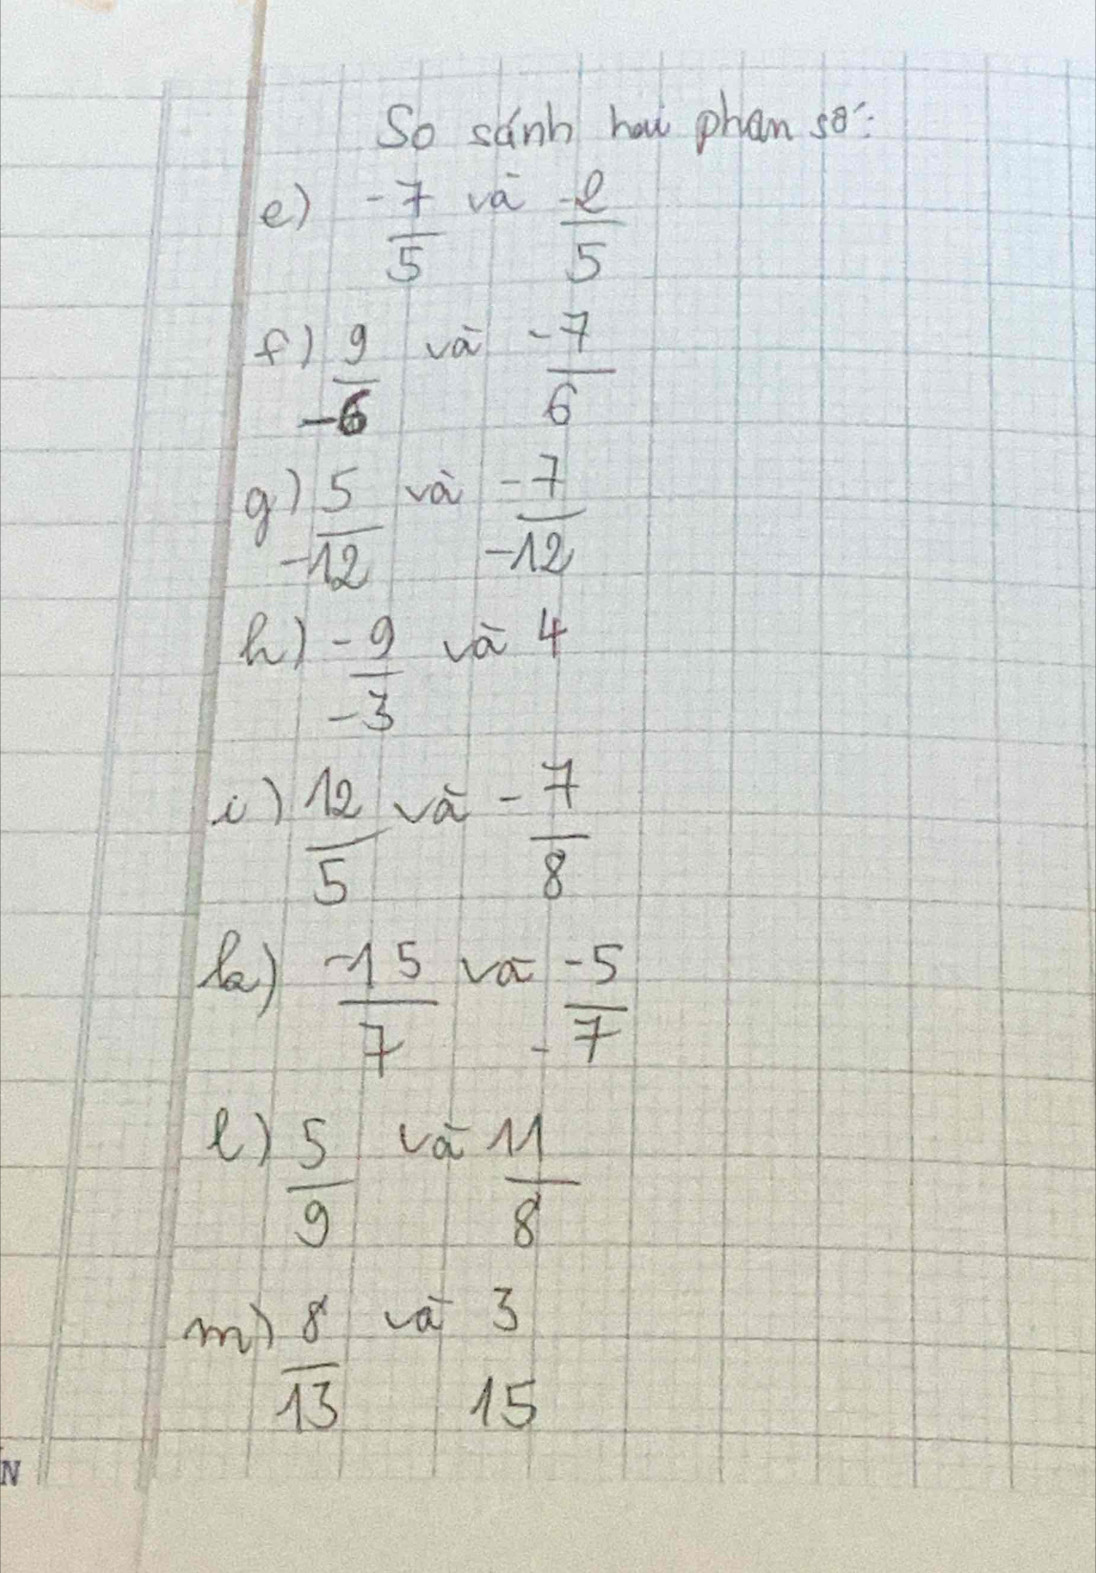 So sánh hai phân số:
e) -7/5 và -2/5
f) 9/-6 và -7/6
g) 5/-12 và -7/-12
h) -9/-3 và 4
i) 12/5 và -7/8
k) -15/7 và -5/-7
l) 5/9 và 11/8
m) 8/13 và 3 15
N